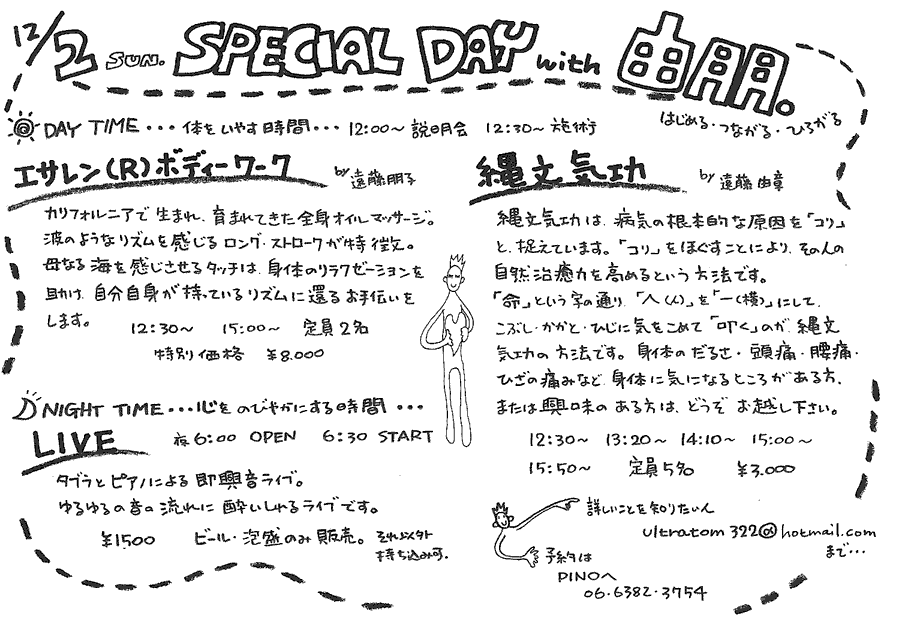 12/2 SUN. SPECIAL DAY with 由朋。
はじめる・つながる・ひろがる
DAY TIME・・・体をいやす時間・・・12:00〜 説明会 12:30〜 施術
エサレン(R)ボディーワーク by 遠藤朋子
カリフォルニアで生まれ、育まれてきた全身オイルマッサージ。
波のようなリズムを感じるロング・ストロークが特徴。
母なる海を感じさせるタッチは、身体のリラクゼーションを
助け、自分自身が持っているリズムに還るお手伝いを
します。
12:30〜 15:00〜 定員2名
特別価格 ¥8.000
縄文気功 by 遠藤由章
縄文気功は、病気の根本的な原因を「コリ」
と、捉えています。「コリ」をほぐすことにより、その人の
自然治癒力を高めるという方法です。
「命」という字の通り、「人(人)」を「一(横)」にして、
こぶし・かかと・ひじに気をこめて「叩く」のが、縄文
気功の方法です。身体のだるさ・頭痛・腰痛・
ひざの痛みなど、身体に気になるところがある方、
または興味のある方は、どうぞお越し下さい。
12:30〜 13:20〜 14:10〜 15:00〜
15:50〜 定員5名 ¥3.000
NIGHT TIME・・・心をのびやかにする時間・・・
LIVE 夜6:00 OPEN 6:30 START
タブラとピアノによる即興音ライブ。
ゆるゆるの音の流れに酔いしれるライブです。
¥1500 ビール・泡盛のみ販売。それ以外
持ち込み可。
詳しいことを知りたい人
ultratom322@hotmail.com
まで・・・
予約は
PINOへ
06・6382・3754